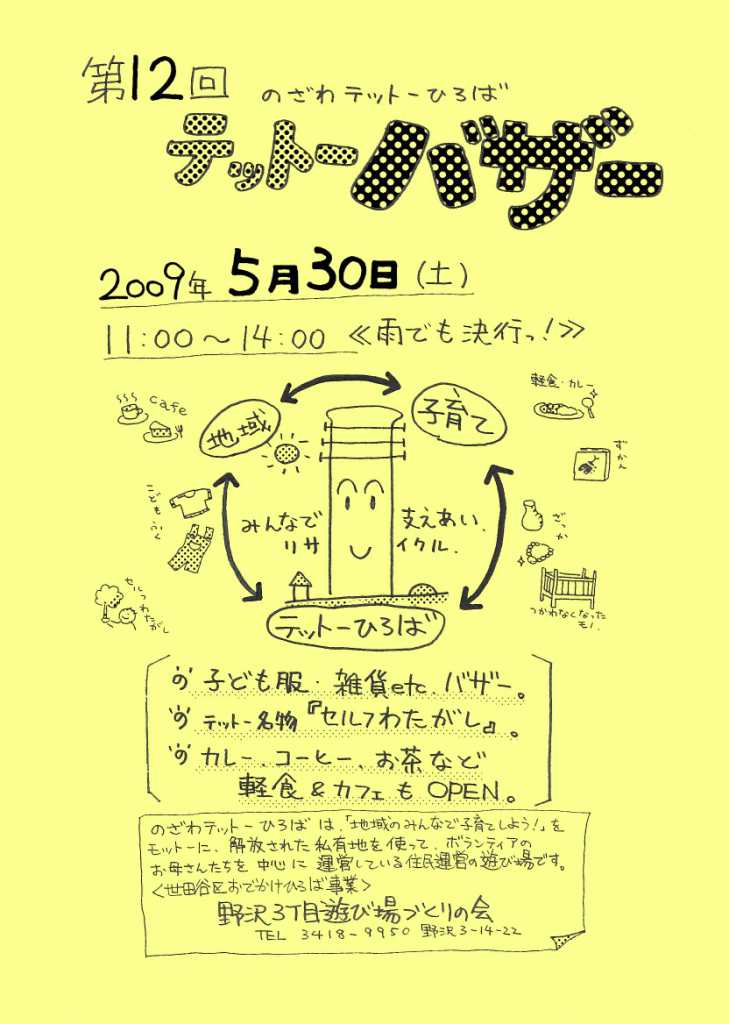 第12回 のざわテットーひろば
テットーバザー
2009年 5月30日(土)
11:00～14:00 ≪雨でも決行っ!≫
cafe
軽食・カレー
地域
子育て
ずかん
こどもふく
みんなで 支えあい、
リサイクル.
ざっか
セルフわたがし
つかわなくなった
モノ.
テットーひろば
子ども服・雑貨etc.バザー。
テットー名物『セルフわたがし』。
カレー、コーヒー、お茶など
軽食&カフェもOPEN。
のざわテットーひろばは、「地域のみんなで子育てしよう!」を
モットーに、解放された私有地を使って、ボランティアの
お母さんたちを中心に運営している住民運営の遊び場です。
<世田谷区おでかけひろば事業>
野沢3丁目遊び場づくりの会
TEL 3418-9950 野沢3-14-22